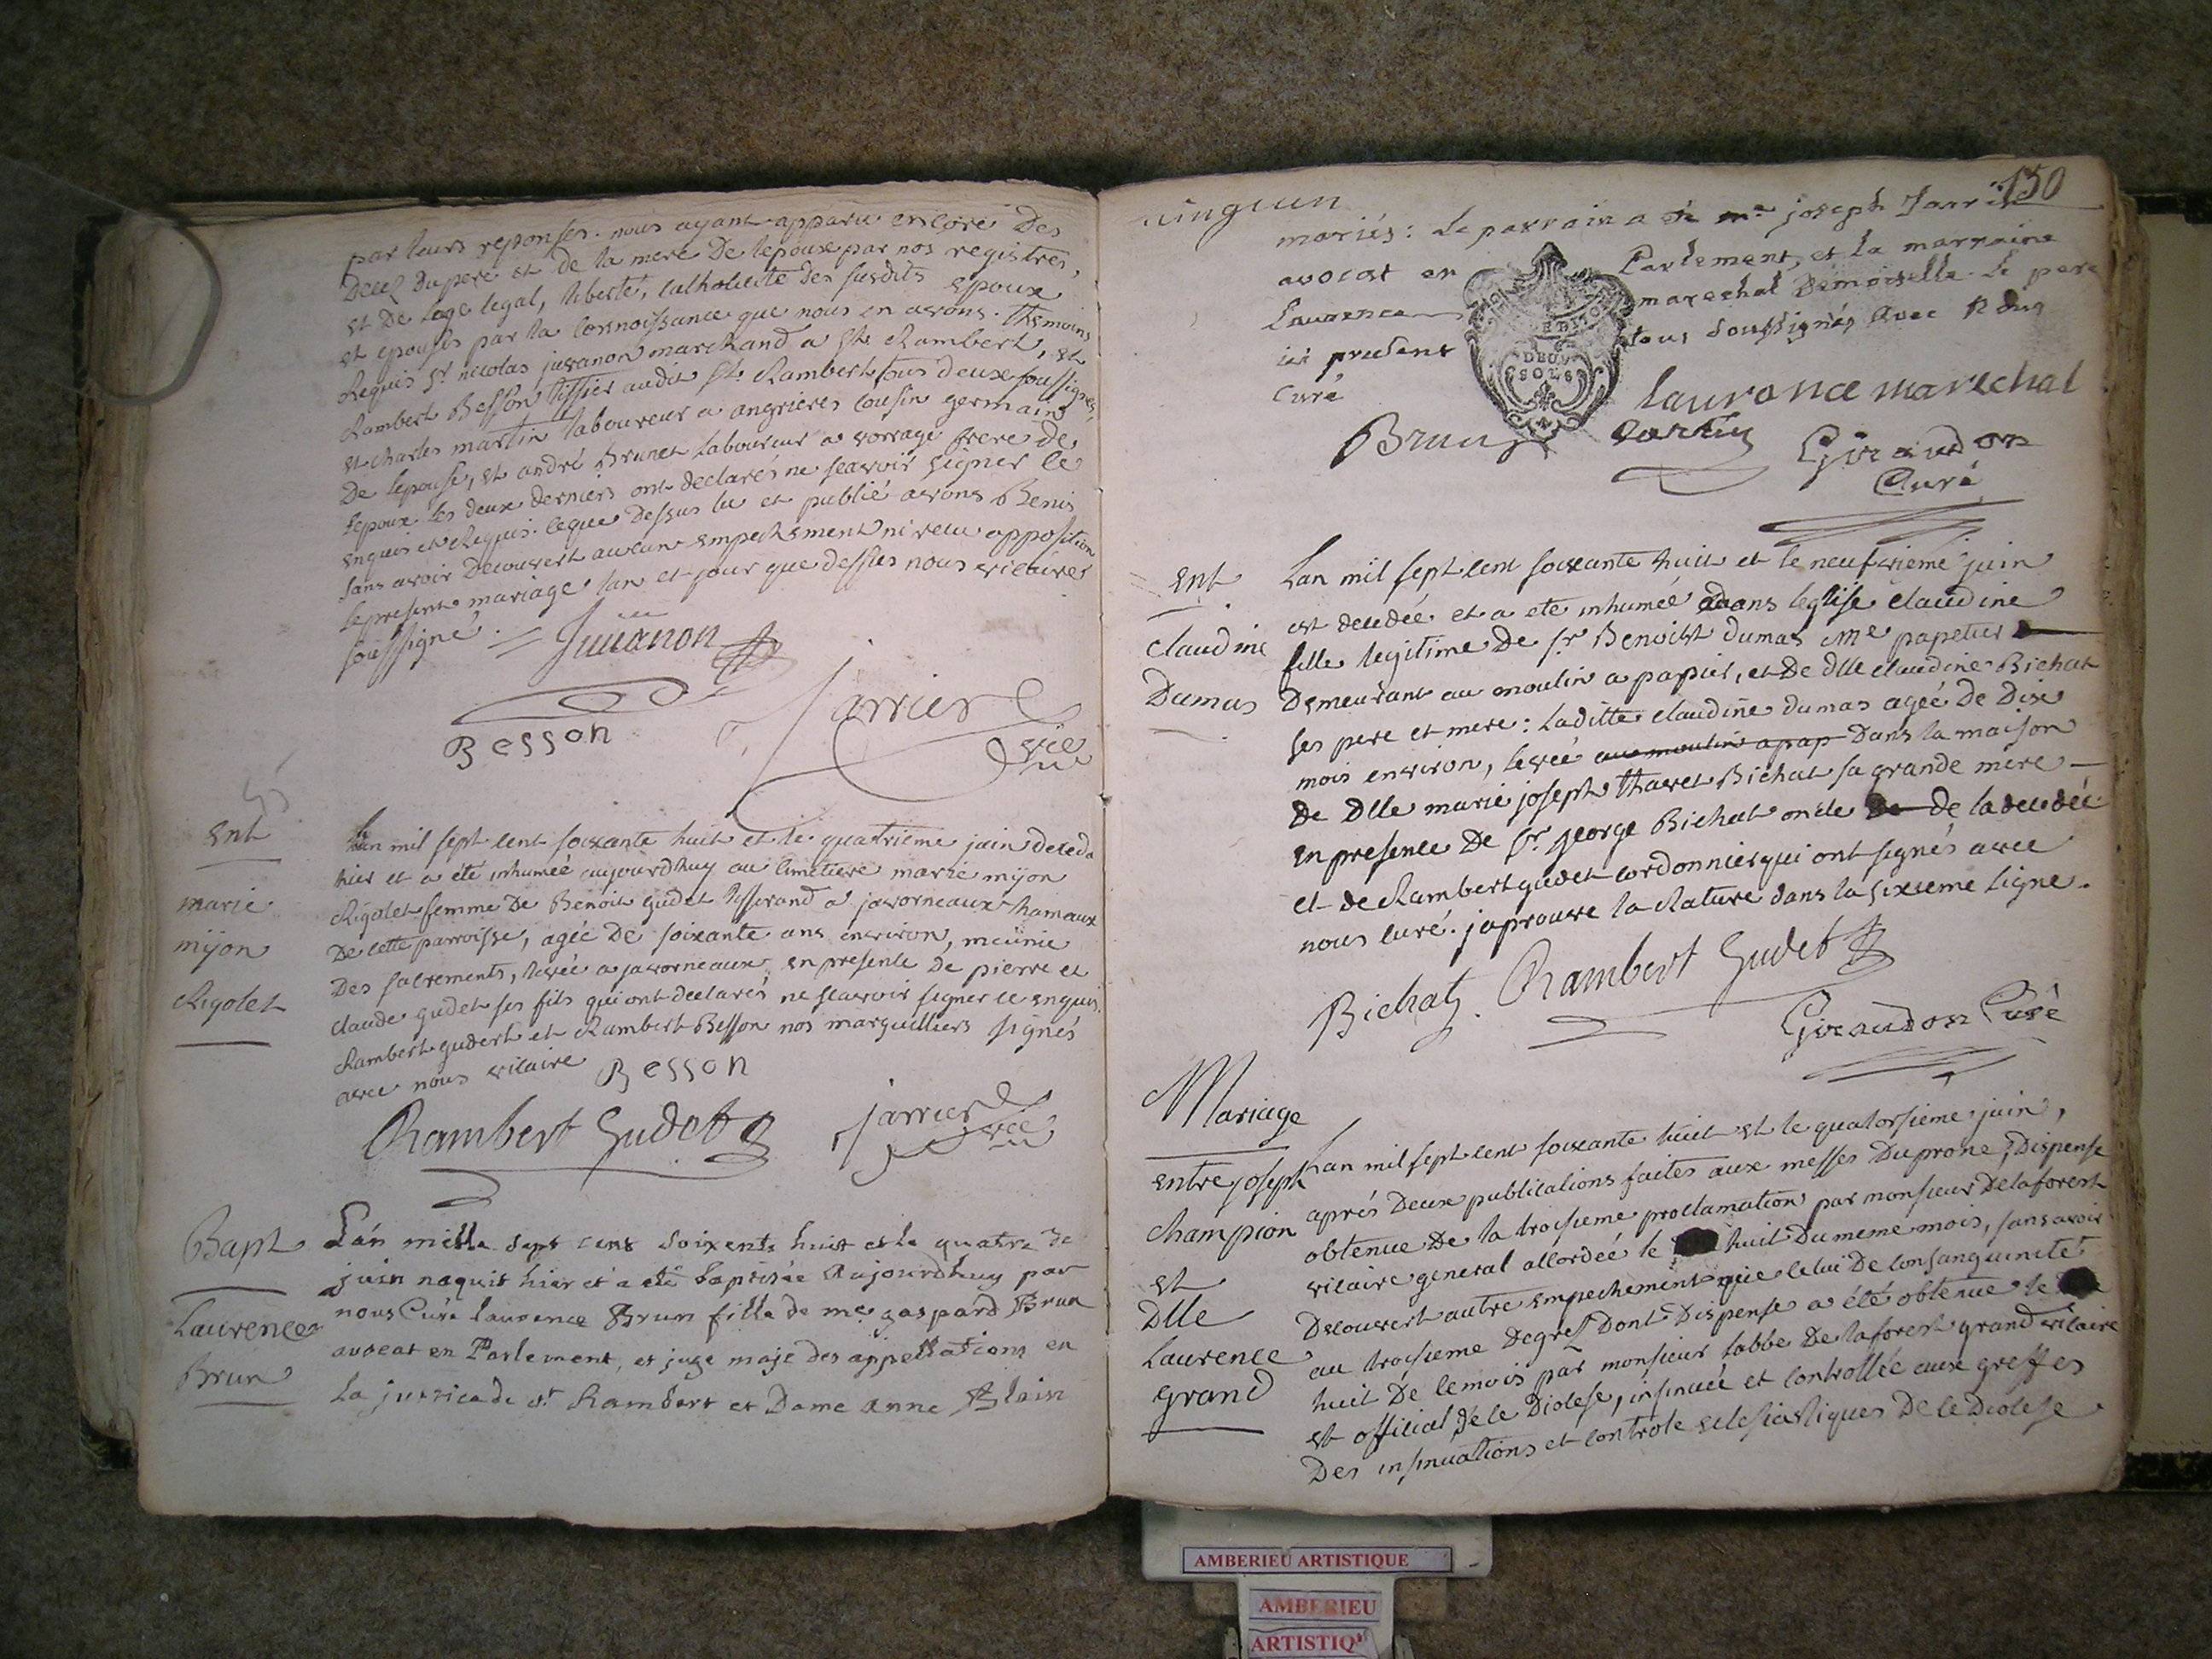 par leurs reponses. nous ayant apparu encore des
decez du pere et de la mere de lepoux par nos registres,
et de lage legal, liberté, catholicité des susdits epoux
et epouses par la connoissance que nous en avons. themoins
Requis sr nicolas juvanon marchand a St Rambert, et
Rambert Besson tissier audit St. Rambert tous deux soussignés,
et charles martin laboureur a angrieres cousin germain
De lepouse, et andré Brunet laboureur a vorrage frere de
lepoux les deux derniers ont declarés ne scavoir signer le
enquis et Requis. ce que dessus lu et publié avons Benis
sans avoir Decouvert aucun empechement ni recu opposition
le present mariage lan et jour que dessus nous vicaires
soussigné.
Juvanon
Besson
Jarrier
vic
Ent
marie
mijon
Rigolet
Lan mil sept cent soixante huit et le quatrieme juin deceda
hier et a été inhumée aujourdhuy au cimetiere marie mijon
Rigolet femme De Benoit gudet tisserand a javorneaux hamaux
De cette parroisse, agée de soixante ans environ, meunie
Des sacrements, levée a javorneaux en presence de pierre et
claude gudet ses fils qui ont declarés ne scavoir signer ce enquis.
Rambert gudert et Rambert Besson nos marguilliers signés
avec nous vicaire
Besson
Rambert Gudet
jarrier
vic
Bapt
Laurence
Brun
Lán mille sept cens soixente huit et le quatre de
juin naquit hier et a eté baptisée aujourdhuy par
nous Curé laurence Brun fille de me gaspard Brun
avocat en Parlement, et juge maje des appellations en
la justice de st Rambert et Dame anne
150
mariés: le parrain a me joseph
avocat en Parlement, et la marraine
Laurence marechal Demoiselle. le pere
ici present tous soussignés avec
Curé
DEUX
SOLS
laurance marechal
Brun
Giraudon
Curé
Ent
claudine
Dumas
Lan mil sept cent soixante huit et le neufvieme juin
est decedée et a eté inhumée dans leglise claudine
fille legitime De sr Benoist dumas Me papetier
Demeurant au moulin a papier, et De dlle claudine Bichat
ses pere et mere: laditte claudine dumas agée de Dix
mois environ, levée au moulin a pap Dans la maison
de Dlle marie joseph tharet Bichat sa grande mere
en presence De sr. george Bichat oncle de de la decedée
et de Rambert gudet cordonnier qui ont signés avec
nous curé. japrouve la Rature dans la sixieme ligne.
Bichat
Rambert Gudet
Giraudon Curé
Mariage
entre joseph
champion
et
Dlle
Laurence
grand
Lan mil sept cent soixante huit et le quatorsieme juin,
aprés Deux publications faites aux messes Du prone, Dispense
obtenue De la troisieme proclamation par monsieur Delaforest
vicaire general accordée le huit Du meme mois, sans avoir
Decouvert autre empechement que celui De consanguinité
au troisieme Degrés Dont Dispense a été obtenue le
huit De ce mois par monsieur labbe De laforest grand vicaire
et official de ce Diocese, insinuée et controllée aux greffes
Des insinuations et controle eclesiastiques De ce Diocese
AMBERIEU ARTISTIQUE
AMBERIEU
ARTISTIQ